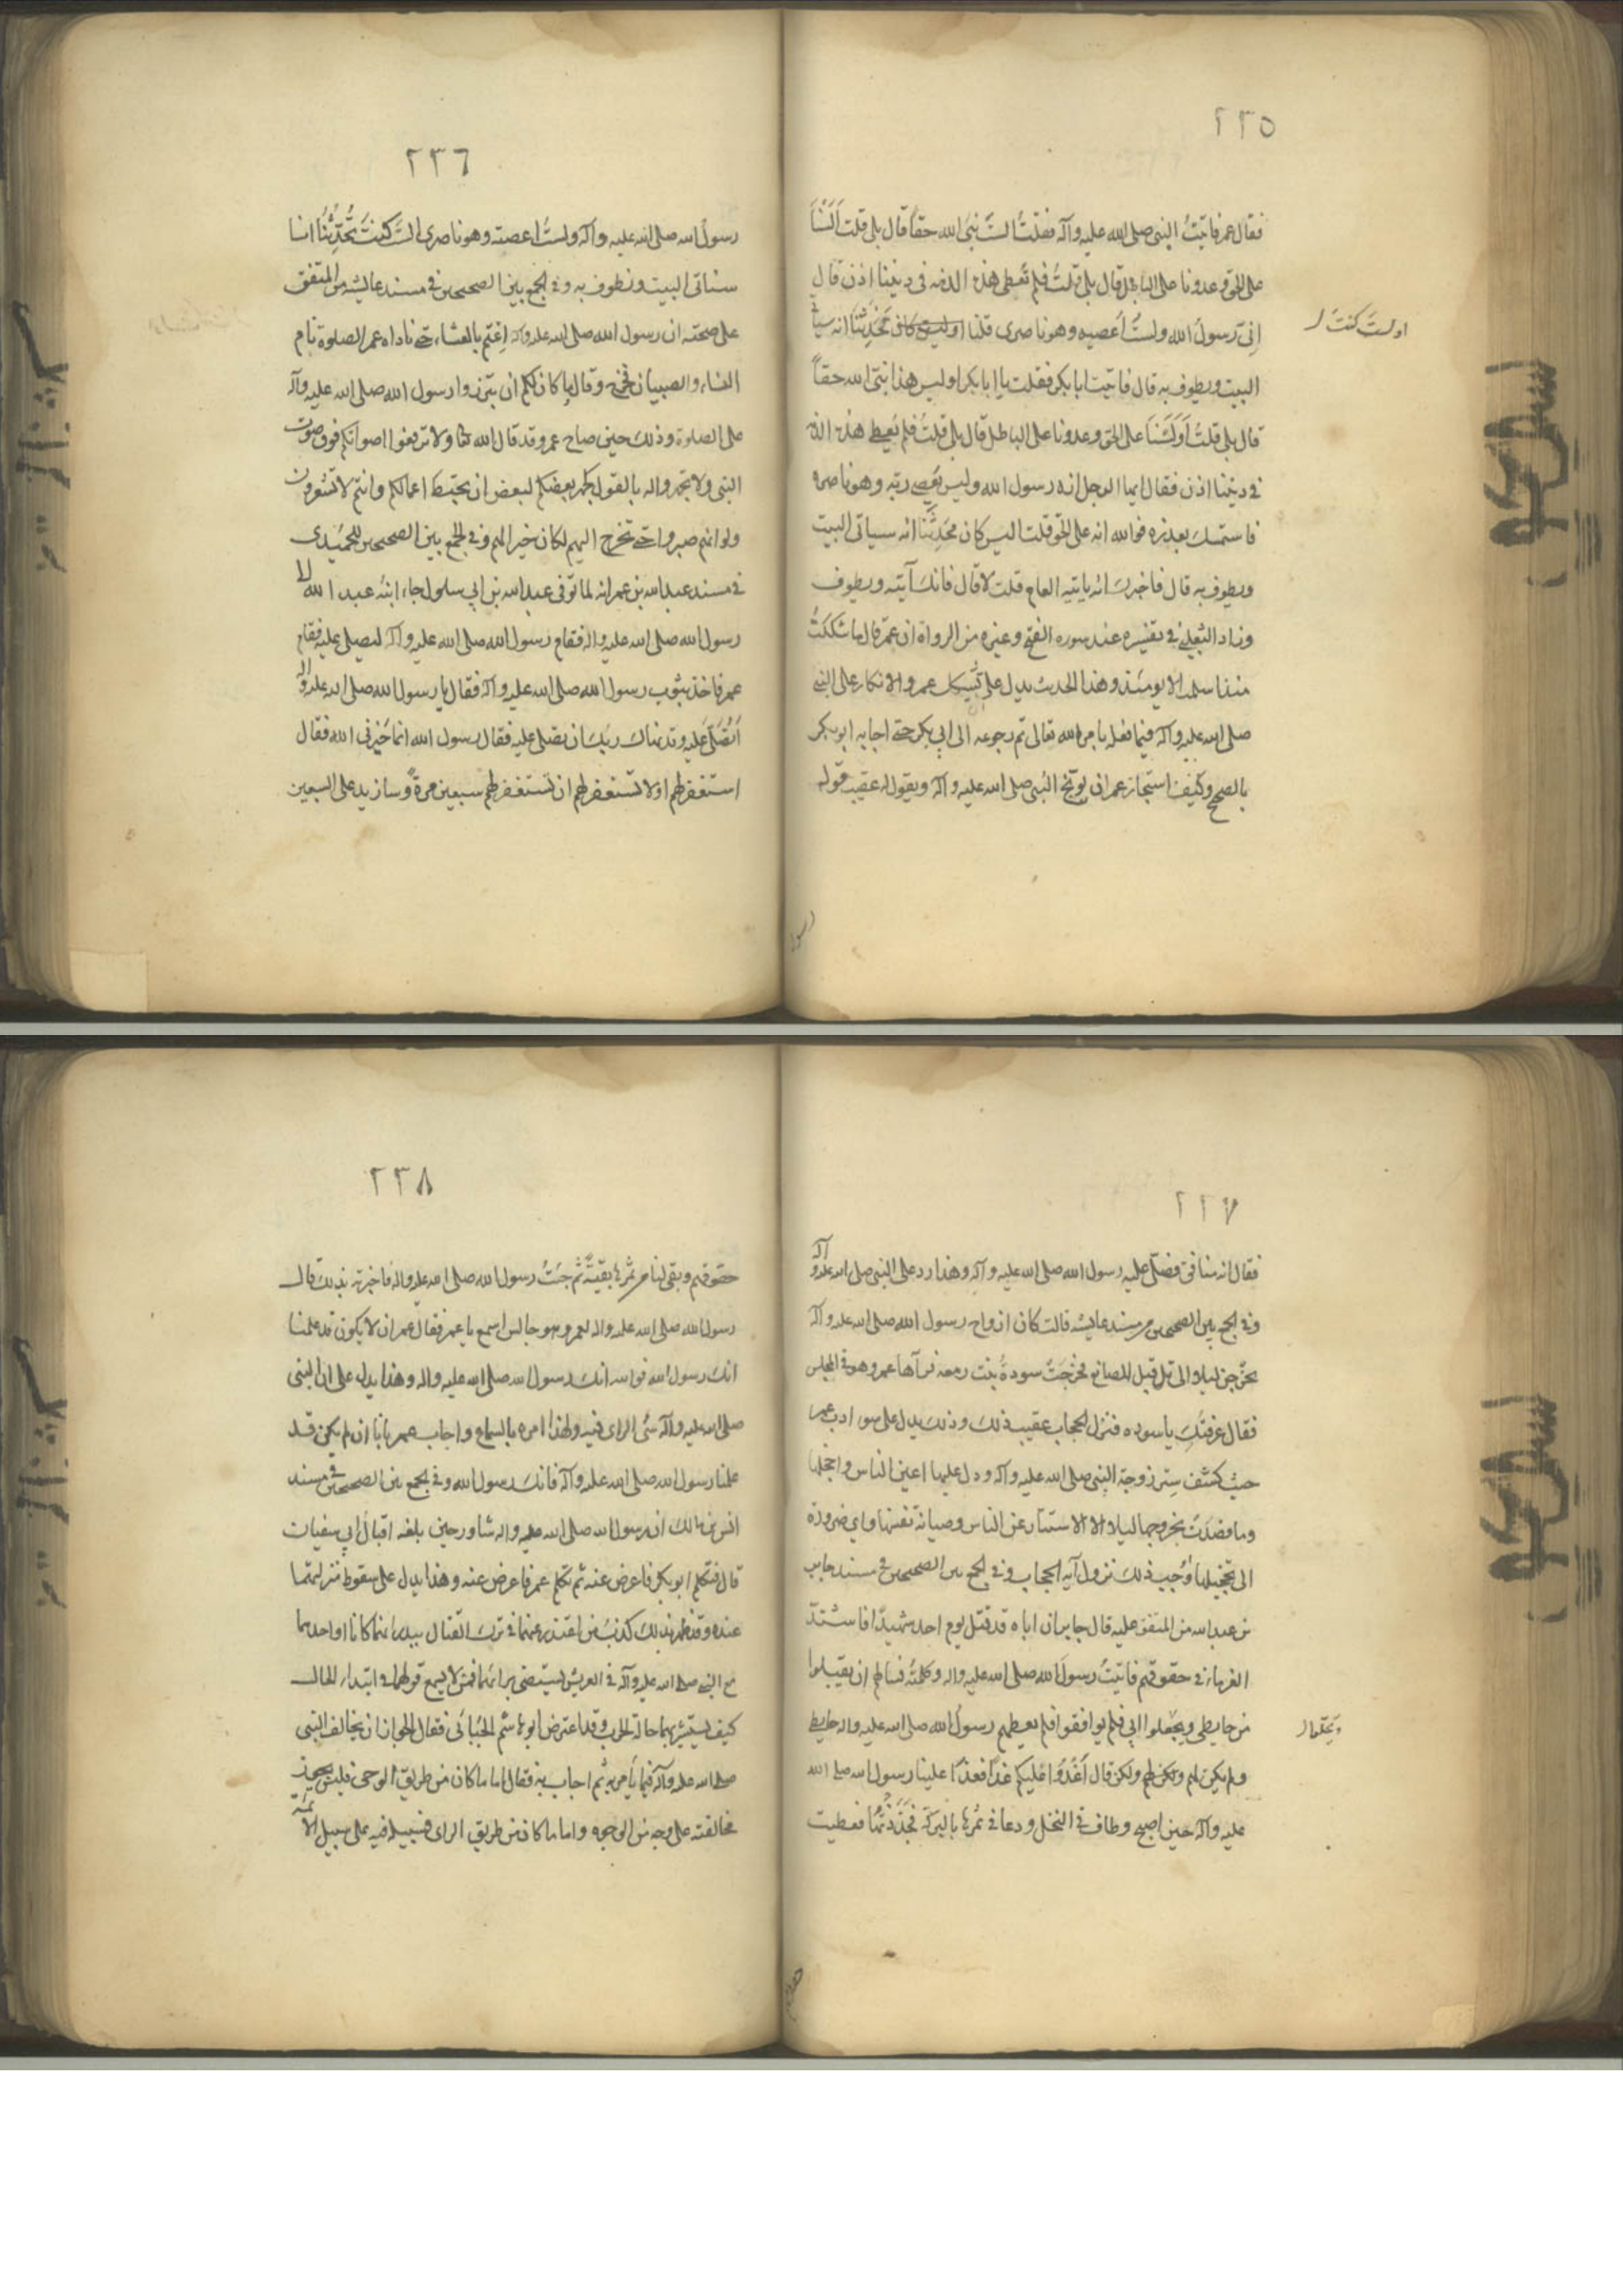 ٢٣٥
فقال عمر فاتيتُ النبى صلى الله عليه وآله فقلتُ الستَ نبىَ الله حقاً قال بلى قلت اَلَسْنَا
على الحق وعدونا على الباطل قال بلى قلتُ فلم نُعطى هذه الدنيه فى ديننا اذن قال
اِنِّى رسولُ الله ولستُ اَعصيه وهو ناصرى قلنا اوليس كان تُحَدِّثنا انه سيأتى
اولستَ كنتَ
البيت ويطوف به قال فاتيت ابا بكر فقلت يا ابا بكر اوليس هذا نبىّ الله حقاً
قال بلى قلتُ اَوَلَسْنَا على الحق وعدونا على الباطل قال بلى قلتُ فلم نُعطى هذه الدنيه
فى ديننا اذن فقال ايها الرجل انه رسول الله وليس يَعصى ربّه وهو ناصره
فاستمسك بعذره فوالله انه على الحق قلت اليس كان يُحَدِّثُنا انه سياتى البيت
ويطوف به قال فاخبرك انه ياتيه العام قلت لا قال فانك آتيه ويطوف
وزاد الثعلبى فى تفسيره عند سوره الفتح وغيره من الرواة ان عمر قال ما شككتُ
منذ اسلمت الا يومئذ وهذا الحديث يدل على تشكيك عمر والانكار على النبى
صلى الله عليه وآله فيما فعله بامر الله تعالى ثم رجوعه الى ابى بكر حتى اجابه ابو بكر
بالصحيح وكيف استجاز عمر ان يوبّخ النبى صلى الله عليه وآله ويقول له عقيب قوله
رسول
٢٣٦
رسولُ الله صلى الله عليه وآله ولستُ اعصيه وهو ناصرى الستَ كنتَ تُحَدِّثُنَا انا
سنأتى البيت ونطوف به وفى الجمع بين الصحيحين فى مسند عايشه من المتفق
على صحته ان رسول الله صلى الله عليه وآله اعتم بالعشاء حتى ناداه عمر الصلوة نام
النساء والصبيان فخرج وقال ما كان لكم ان تبرزوا رسول الله صلى الله عليه وآله
على الصلوة وذلك حين صاح عمر وقد قال الله تعالى ولا ترفعوا اصواتكم فوق صوت
النبى ولا تجهروا له بالقول كجهر بعضكم لبعض ان تحبط اعمالكم وانتم لا تشعرون
ولو انهم صبروا حتى تخرج اليهم لكان خيرا لهم وفى الجمع بين الصحيحين للحُمَيدى
فى مسند عبد الله بن عمر انه لما توفى عبد الله بن ابى سلول جاء ابنُه عبد الله الى
رسول الله صلى الله عليه واله فقام رسول الله صلى الله عليه وآله ليصلى عليه فقام
عمر فاخذ بثوب رسول الله صلى الله عليه وآله فقال يا رسول الله صلى الله عليه واله
اَتُصَلّى عليه وقد نهاك ربك ان تصلى عليه فقال رسول الله انما خَيَّرنى الله فقال
استغفر لهم اولا تستغفر لهم ان تستغفر لهم سبعين مرةً وسازيد على السبعين
٢٣٧
فقال انه منافق فصلّى عليه رسول الله صلى الله عليه وآله وهذا رد على النبى صلى الله عليه وآله
وفى الجمع بين الصحيحين من مسند عايشه قالت كان ازواج رسول الله صلى الله عليه وآله
يخرجن ليلا الى قبل المصانع فخرجَت سودةُ بنت زمعه فرآها عمر وهو فى المجلس
فقال عرفتكِ يا سوده فنزل الحجاب عقيب ذلك وذلك يدل على سوء ادب عمر
حيث كشف سِتر زوجة النبى صلى الله عليه وآله ودل عليها اعين الناس واخجلها
وما قصدَت بخروجها ليلا الا الاستتار عن الناس وصيانة نفسها واى ضرورة
الى تخجيلها اوجب ذلك نزول آية الحجاب وفى الجمع بين الصحيحين فى مسند جابر
بن عبد الله من المتفق عليه قال جابر ان اباه قد قتل يوم احد شهيدًا فاشتدّ
الغرماء فى حقوقهم فاتيتُ رسولَ الله صلى الله عليه واله وكلمتُه فسالهم ان يقبلوا
من حايطى ويجعلوا ابى فلم يوافقوا فلم يعطهم رسولُ الله صلى الله عليه واله حايطى
ويُحَلّلوا
ولم يكن لهم ولكن لهم ولكن قال اَغدُوا عليكم غداً فغدَا علينا رسول الله صلى الله
عليه وآله حين اصبح وطاف فى النخل ودعا فى ثمرها بالبركة فَجَذَذْتُها فقضيت
حقوقهم
٢٣٨
حقوقهم وبقى لنا من ثمرها بقيّةٌ ثم جئتُ رسول الله صلى الله عليه واله فاخبرته بذلك قال
رسول الله صلى الله عليه واله لعمر وهو جالس اسمع يا عمر فقال عمر ان لا يكون قد علمنا
انك رسول الله فوالله انك رسول الله صلى الله عليه واله وهذا يدل على ان النبى
صلى الله عليه وآله سَىّء الراى فيه ولهذا امره بالسماع واجاب عمر بانا ان لم يكن قد
علمنا رسول الله صلى الله عليه وآله فانك رسول الله وفى الجمع بين الصحيحين فى مسند
انس بن مالك ان رسول الله صلى الله عليه واله شاور حين بلغه اقبالُ ابى سفيان
قال فتكلم ابو بكر فاعرض عنه ثم تكلم عمر فاعرض عنه وهذا يدل على سقوط منزلتهما
عنده وقد ظهر بذلك كذبُ من اعتذر عنهما فى ترك القتال ببدر بانهما كانا او احدهما
مع النبى صلى الله عليه وآله فى العريش ليستضى برائهما فمن لا يسمع قولهما فى ابتداء الحال
كيف يستنير بهما حالة الحرب وقد اعترض ابو هاشم الجُبّائى فقال ايجوز ان يخالف النبى
صلى الله عليه وآله فيما يامر به ثم اجاب به فقال اما ما كان من طريق الوحى فليس يجوز
مخالفته على وجه من الوجوه واما ما كان من طريق الراى فسبيله فيه على سبيل الائمة